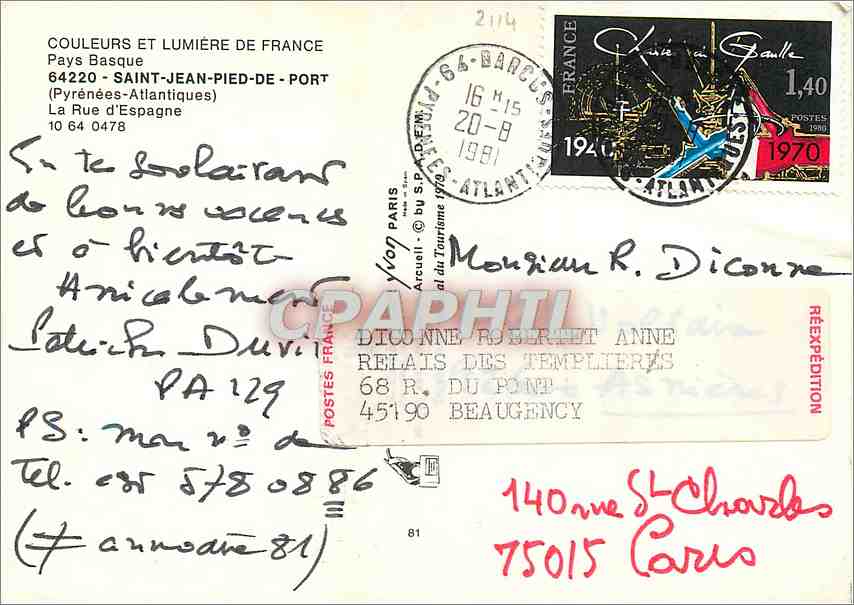 2114
COULEURS ET LUMIÈRE DE FRANCE
Pays Basque
64220 - SAINT-JEAN-PIED-DE-PORT
(Pyrénées-Atlantiques)
La Rue d'Espagne
10 64 0478
64-BARCUS
16 H 15
20-8
1981
PYRENEES-ATLANTIQUES
FRANCE
Charles de Gaulle
1,40
POSTES
1980
1940
1970
En te souhaitant
de bonnes vacances
et à bientôt
Amicalement
Patrick
PA 129
PS: mon n° de
Tel. est 578 08 86
(≠ annuaire 81)
Yvon PARIS
Arcueil - © by S.P.A.D.E.M.
al du Tourisme 1979
Monsieur R. Diconne
CPAPHIL
POSTES FRANCE
DICONNE ROBERTET ANNE
RELAIS DES TEMPLIERS
68 R. DU PONT
45190 BEAUGENCY
RÉEXPÉDITION
Voltaire
Asnières
140 rue St Charles
75015 Paris
81